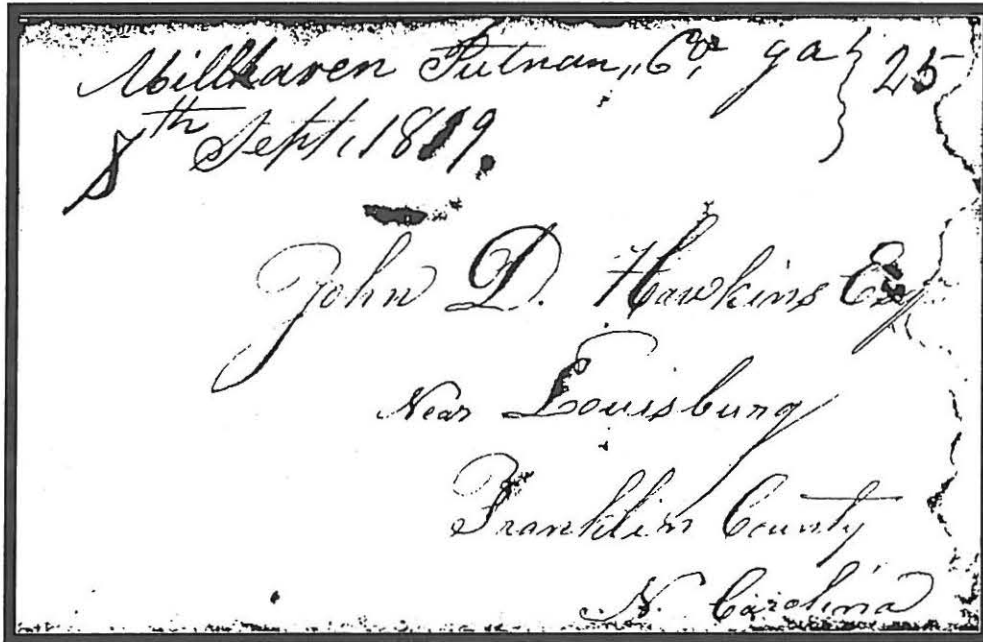 Millhaven Putnam, Co, ga } 25
8th Sept, 1819.
John D. Hawkins Esq
Near Louisburg
Franklin County
N. Carolina